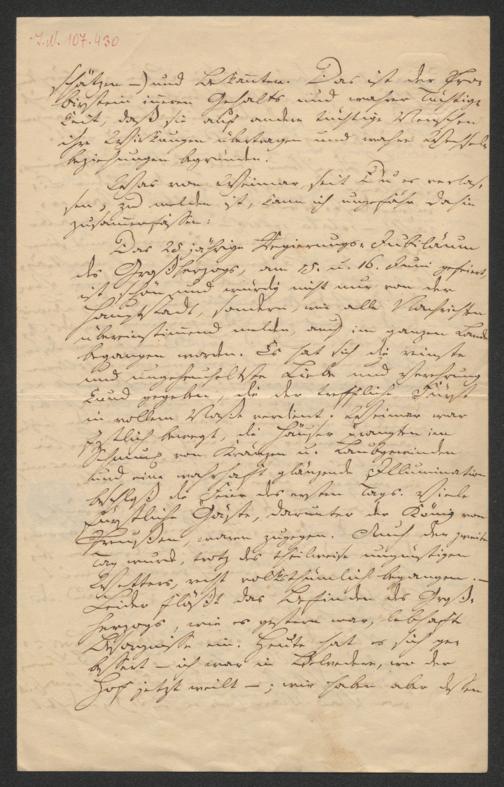 I.N. 107.430
schätzen –) und Bekannten. Das ist der
inneren Gehalts und wahrer Tüchtig-
keit, daß sie auf andere tüchtige Menschen
ihre Wirkungen übertragen und wahre Wechsel-
beziehungen begründen.
Was von Weimar, seit Du es verlas-
sen, zu melden ist, kann ich ungefähr dahin
zusammenfassen:
Das 25 jährige Regierungs-Jubiläum
des Großherzogs, am 15. u. 16. Juni gefeiert,
ist schön und würdig nicht nur von der
Hauptstadt, sondern, wie alle Nachrichten
übereinstimmend melden, auch im ganzen Lande
begangen worden. Es hat sich die reinste
und ungeheuchelste Liebe und Verehrung
kund gegeben, die der treffliche Fürst
in vollem Maße verdient. Weimar war
festlich bewegt, die Häuser prangten im
Schmuck von Kränzen u. Laubgewinden
und eine wahrhaft glänzende Illumination
beschloß die Feier des ersten Tags. Viele
fürstliche Gäste, darunter der König von
Preußen, waren zugegen. Auch der zweite
Tag wurde, trotz des theilweise ungünstigen
Wetters, recht volksthümlich begangen. –
Leider flößt das Befinden des Groß-
herzogs, wie es gestern war, lebhafte
Besorgnisse ein. Heute hat es sich ge-
bessert – ich war in Belvedere, wo der
Hof jetzt weilt –; wir haben aber dessen